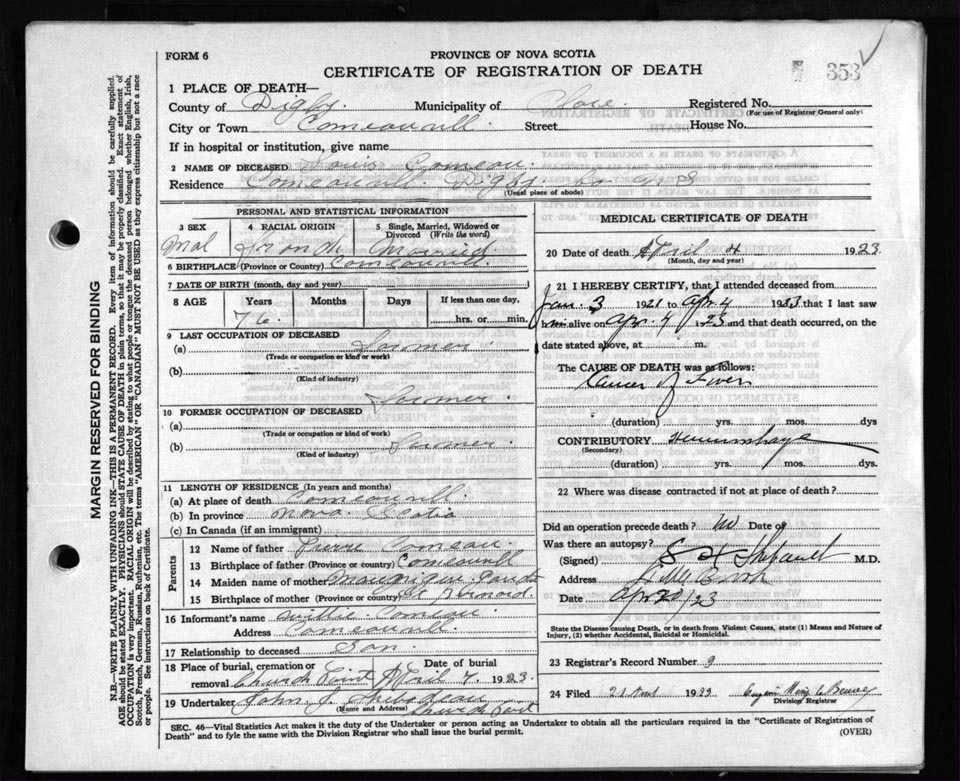 FORM 6
PROVINCE OF NOVA SCOTIA
CERTIFICATE OF REGISTRATION OF DEATH
353
1 PLACE OF DEATH—
County of Digby. Municipality of Clare. Registered No.
(For use of Registrar General only)
City or Town Comeauvill. Street House No.
If in hospital or institution, give name
2 NAME OF DECEASED Louis Comeau.
Residence Comeauvill. Digby. Co N S
(Usual place of abode)
PERSONAL AND STATISTICAL INFORMATION
3 SEX
Mal
4 RACIAL ORIGIN
5 Single, Married, Widowed or Divorced (Write the word)
Married
6 BIRTHPLACE (Province or Country) Comeauvill.
7 DATE OF BIRTH (month, day and year)
8 AGE Years Months Days If less than one day,
76. hrs. or min.
9 LAST OCCUPATION OF DECEASED
(a)
(Trade or occupation or kind or work)
(b)
(Kind of industry)
10 FORMER OCCUPATION OF DECEASED
(a)
(Trade or occupation or kind of work)
(b)
(Kind of industry)
11 LENGTH OF RESIDENCE (In years and months)
(a) At place of death Comeauvill.
(b) In province Nova Scotia
(c) In Canada (if an immigrant)
Parents
12 Name of father Comeau.
13 Birthplace of father (Province or Country) Comeauvill
14 Maiden name of mother
15 Birthplace of mother (Province or country) St Bernard.
16 Informant's name Willie Comeau
Address Comeauvill.
17 Relationship to deceased Son.
18 Place of burial, cremation or removal Church Point Date of burial April 7. 1923.
19 Undertaker John J. Thibodeau
(Name and Address) Church Point
MEDICAL CERTIFICATE OF DEATH
20 Date of death April 4 1923
(Month, day and year)
21 I HEREBY CERTIFY, that I attended deceased from
Jan. 3 1921 to Apr. 4 1923 that I last saw
him alive on Apr. 4 1923 and that death occurred, on the
date stated above, at m.
The CAUSE OF DEATH was as follows:
Cancer of Liver
(duration) yrs. mos. dys
CONTRIBUTORY Hemorrhage
(Secondary)
(duration) yrs. mos. dys.
22 Where was disease contracted if not at place of death?
Did an operation precede death? No Date of
Was there an autopsy?
(Signed) M.D.
Address Little Brook
Date Apr 20/23
State the Disease causing Death, or in death from Violent Causes, state (1) Means and Nature of Injury, (2) whether Accidental, Suicidal or Homicidal.
23 Registrar's Record Number 9
24 Filed 1923
Division Registrar
SEC. 46—Vital Statistics Act makes it the duty of the Undertaker or person acting as Undertaker to obtain all the particulars required in the "Certificate of Registration of
Death" and to fyle the same with the Division Registrar who shall issue the burial permit.
(OVER)
MARGIN RESERVED FOR BINDING
N.B.—WRITE PLAINLY WITH UNFADING INK—THIS IS A PERMANENT RECORD. Every item of information should be carefully supplied.
AGE should be stated EXACTLY. PHYSICIANS should STATE CAUSE OF DEATH in plain terms, so that it may be properly classified. Exact statement of
OCCUPATION is very important. RACIAL ORIGIN will be described by stating to what people or tongue the deceased person belonged whether English, Irish,
Scotch, French, German, Russian, Ruthenian, etc. The terms "AMERICAN" OR "CANADIAN" MUST NOT BE USED as they express citizenship but not a race
or people. See instructions on back of Certificate.